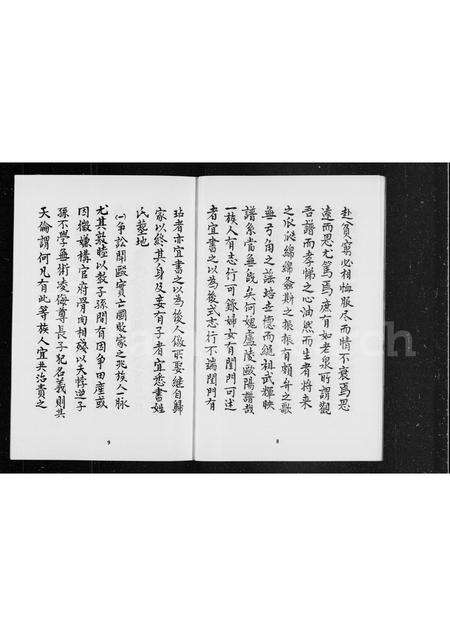 赴貧窮必相恤服尽而情不衰焉思
遠而思尤篤焉庶有如老泉所謂觀
吾譜而孝悌之心油然而生者將来
之瓜瓞綿綿螽斯之振振有頼弁之歌
無弓角之謠培世德而繩祖武輝映
譜系當無既矣何媿盧陵歐陽譜哉
一族人有志行可錄婦女有閨門可述
者宜書之以為後式志行不端閨門有
8
玷者亦宜書之以為後人儆所娶継自歸
家以終其身及妾有子者宜悉書姓
氏墓地
㈠爭訟開毆實亡國敗家之兆族人一脉
尤其敦睦以教子孫間有因爭田産或
因微嫌構官府骨肉相殘以夫悖逆子
孫不學無術凌侮尊長干犯名義則其
天倫謂何凡有此等族人宜共治責之
9